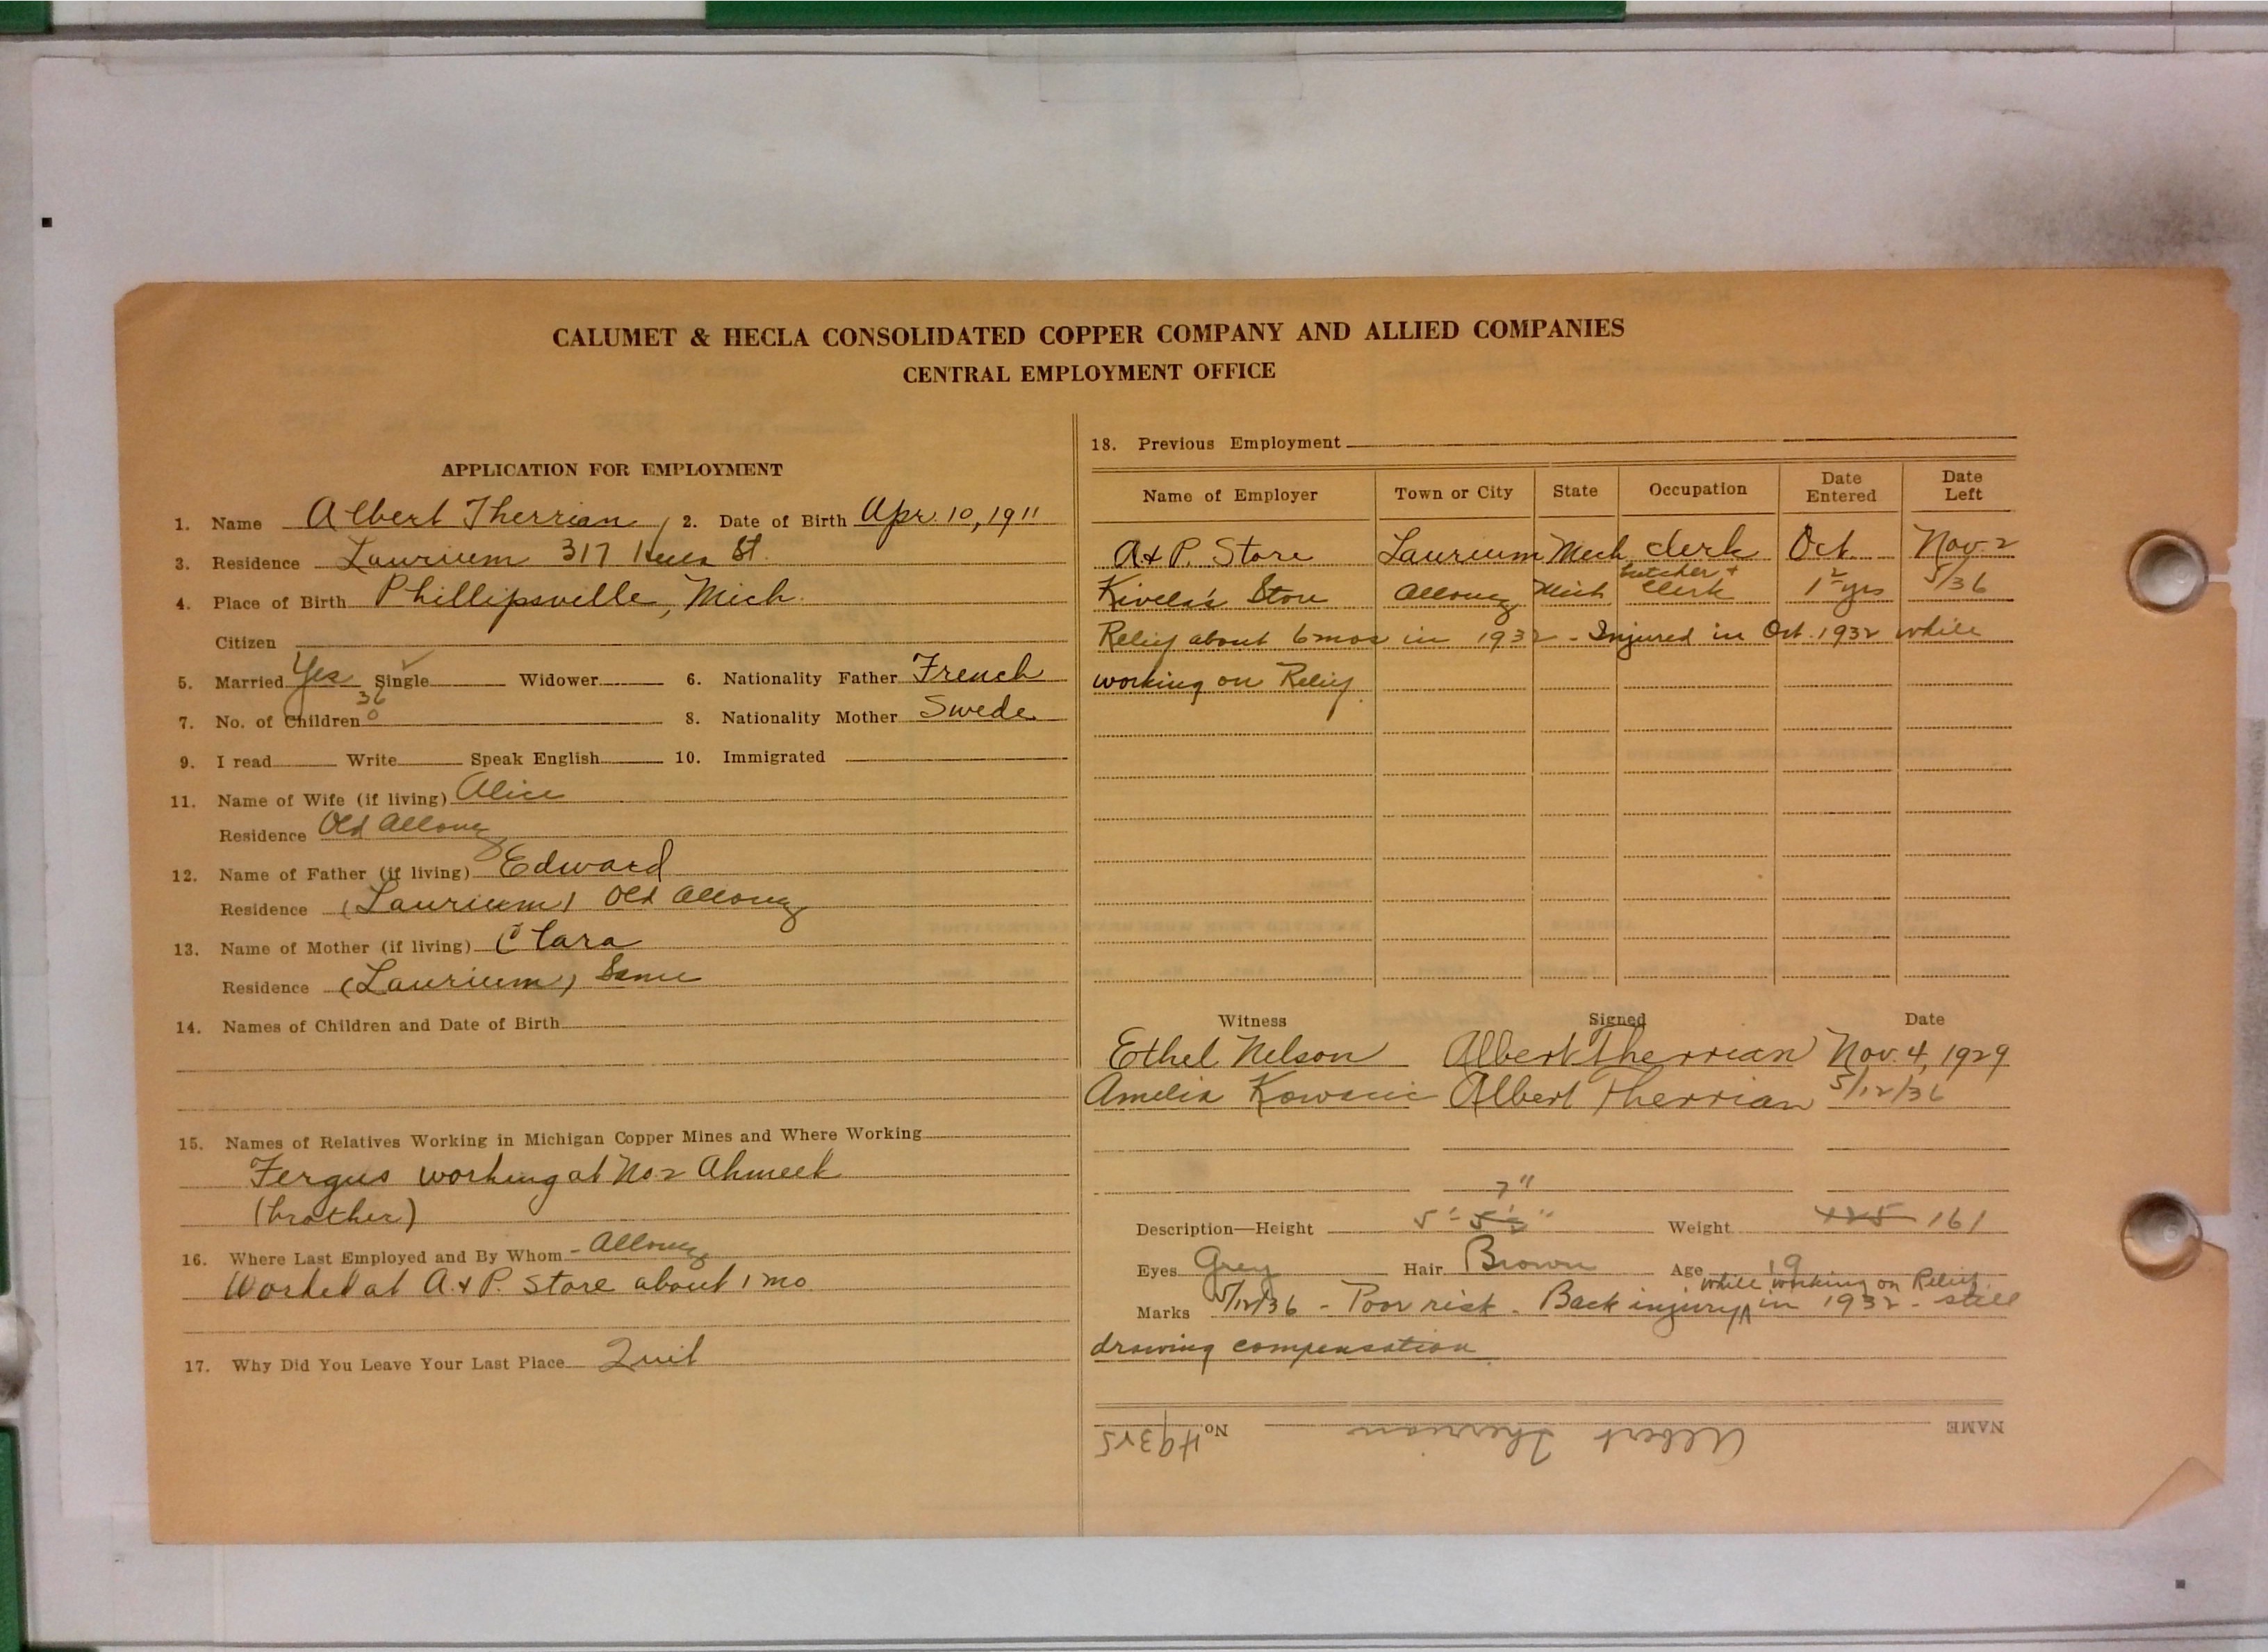 CALUMET & HECLA CONSOLIDATED COPPER COMPANY AND ALLIED COMPANIES
CENTRAL EMPLOYMENT OFFICE
APPLICATION FOR EMPLOYMENT
1. Name Albert Therrian 2. Date of Birth Apr. 10, 1911
3. Residence Laurium 317 St.
4. Place of Birth Phillipsville, Mich.
Citizen
5. Married Yes Single Widower 6. Nationality Father French
36
7. No. of Children 0 8. Nationality Mother Swede
9. I read Write Speak English 10. Immigrated
11. Name of Wife (if living) Alice
Residence Old Allouez
12. Name of Father (if living) Edward
Residence (Laurium) Old Allouez
13. Name of Mother (if living) Clara
Residence (Laurium) Same
14. Names of Children and Date of Birth
15. Names of Relatives Working in Michigan Copper Mines and Where Working
Fergus working at No 2 Ahmeek
(brother)
16. Where Last Employed and By Whom - Allouez
Worked at A. & P. Store about 1 mo.
17. Why Did You Leave Your Last Place Quit
18. Previous Employment
Name of Employer Town or City State Occupation Date Entered Date Left
A & P. Store Laurium Mich clerk Oct. Nov. 2
Kivela's Store Allouez Mich butcher + Clerk 1 2 yrs 5/36
Relief about 6 mos in 1932 - Injured in Oct. 1932 while
working on Relief.
Witness Signed Date
Ethel Nelson Albert Therrian Nov. 4, 1929
Amelia Albert Therrian 5/12/36
7"
Description—Height 5'- 5½" Weight 125 161
Eyes Grey Hair Brown Age 19
while working on Relief
Marks 5/12/36 - Poor risk - Back injury in 1932 - still
drawing compensation
NAME Albert Therrian No. 49325